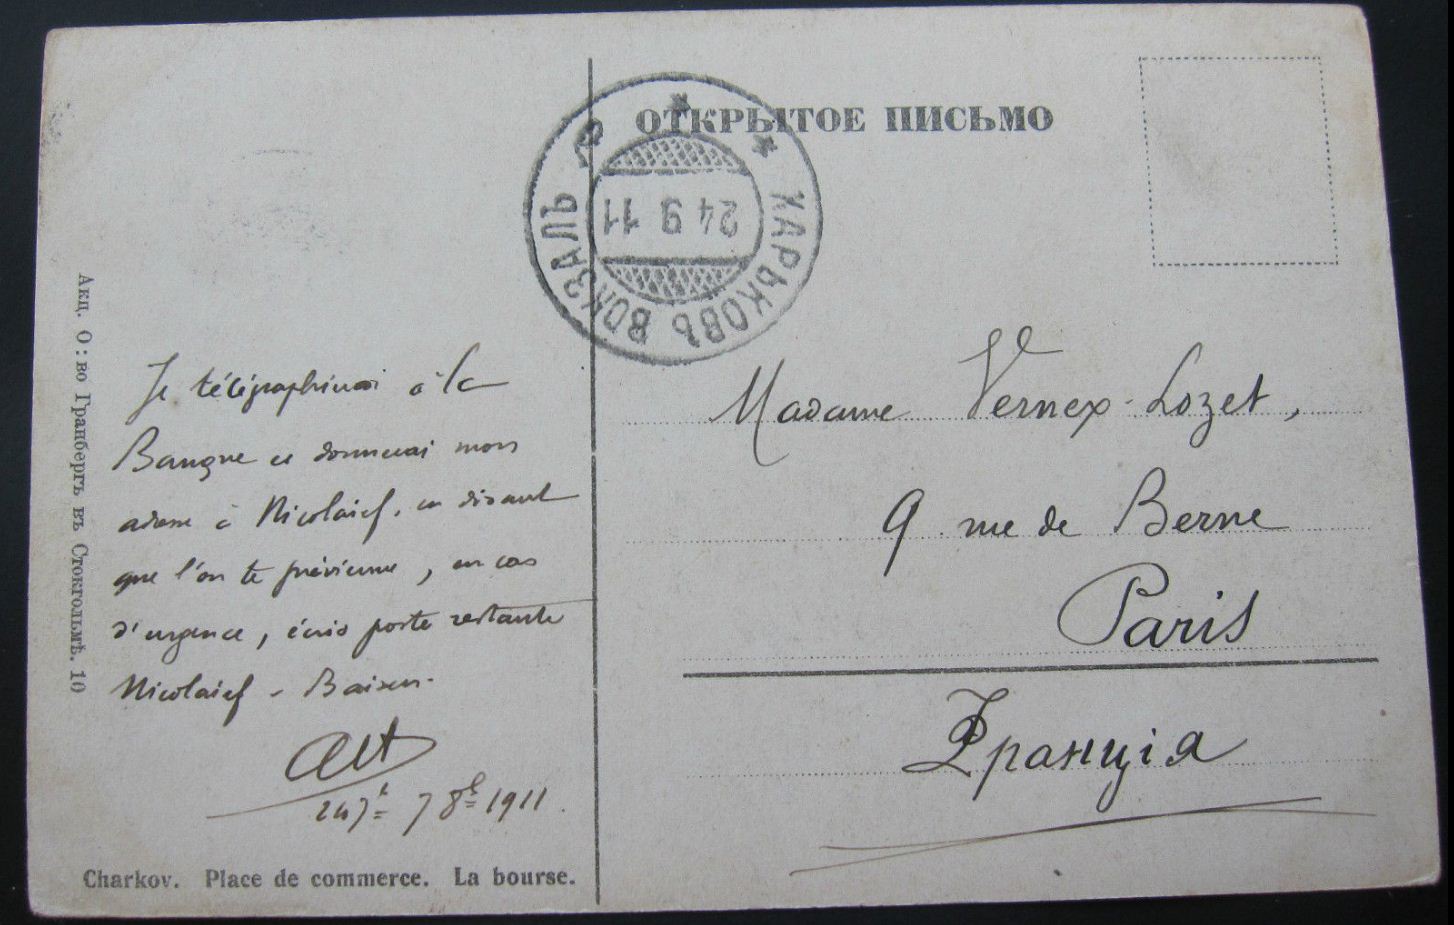 ОТКРЫТОЕ ПИСЬМО
ХАРЬКОВЪ ВОКЗАЛЪ
24 9 11
Je télégraphierai à la
Banque et donnerai mon
adresse à Nicolaief, en disant
que l'on te prévienne, en cas
d'urgence, écris poste restante
Nicolaief - Baisers.
24 7r 7 8e 1911
Madame Vernex-Lozet,
9 rue de Berne
Paris
Франція
Акц. О:во Гранбергъ въ Стокгольмѣ. 10
Charkov. Place de commerce. La bourse.